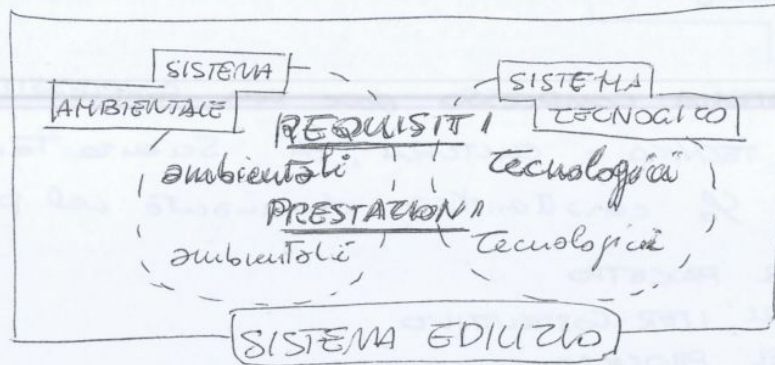 SISTEMA
AMBIENTALE
SISTEMA
TECNOGICO
REQUISITI
ambientali tecnologici
PRESTAZIONI
ambientali tecnologici
SISTEMA EDILIZIO